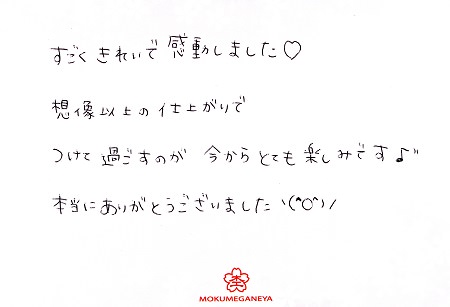 すごくきれいで感動しました♡
想像以上の仕上がりで
つけて過ごすのが今からとても楽しみです♪
本当にありがとうございましたヽ(^O^)ノ
MOKUMEGANEYA